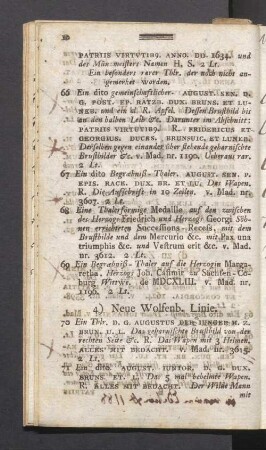 20
PATRIIS VIRTUTIB9. ANNO. DD. 1634. und
der Münzmeisters Namen H. S. 2 Lt.
Ein besonders rarer Thlr. der noch nicht an-
gemerket worden.
66 Ein dito gemeinschaftlicher. AUGUST. SEN. D.
G. POST. EP. RATZO. DUX. BRUNS. ET LU-
NEB. und ein M. R. Apfel. Dessen Brustbild bis
an den halben Leib &c. Darunter im Abschnitt:
PATRIIS VIRTUTIB9. R. FRIDERICUS ET
GEORGIUS. DUCES. BRUNSUIC. ET LUNEB.
Derselben gegen einander über stehende geharnischte
Brustbilder &c. v. Mad. nr. 1190. Ueberaus rar.
2 Lt.
67 Ein dito Begräbniß-Thaler. AUGUST. SEN. P.
EPIS. RACE. DUX. BR. ET LU. Das Wapen.
R. Die Aufschrift in 10 Zeilen. v. Mad. nr.
3607. 2 Lt.
68 Eine Thalerförmige Medaille auf den zwischen
des Herzogs Friedrich und Herzogs Georgi Söh-
nen errichteten Successions-Recess, mit dem
Brustbilde und dem Mercurio &c. mit Pax una
triumphis &c. und Vestrum erit &c. v. Mad.
nr. 3612. 2 Lt.
69 Ein Begräbniß-Thaler auf die Herzogin Marga-
retha, Herzogs Joh. Casimir zu Sachsen-Co-
burg Wittwe, de MDCXLIII. v. Mad. nr.
1196. 2 Lt.
4.) Neue Wolfenb. Linie.
70 Ein Thlr. D. G. AUGUSTUS DER JUNGER H. Z.
BRUN. U. L. Das geharnischte Brustbild von der
rechten Seite &c. R. Das Wapen mit 3 Helmen.
ALLES MIT BEDACHT. v. Mad. nr. 3615.
2 Lt.
71 Ein dito. AUGUST. IUNIOR. D. G. DUX.
BRUNS ET. L. Das 5 mal behelmte Wapen.
R. ALLES MIT BEDACHT. Der Wilde Mann
mit